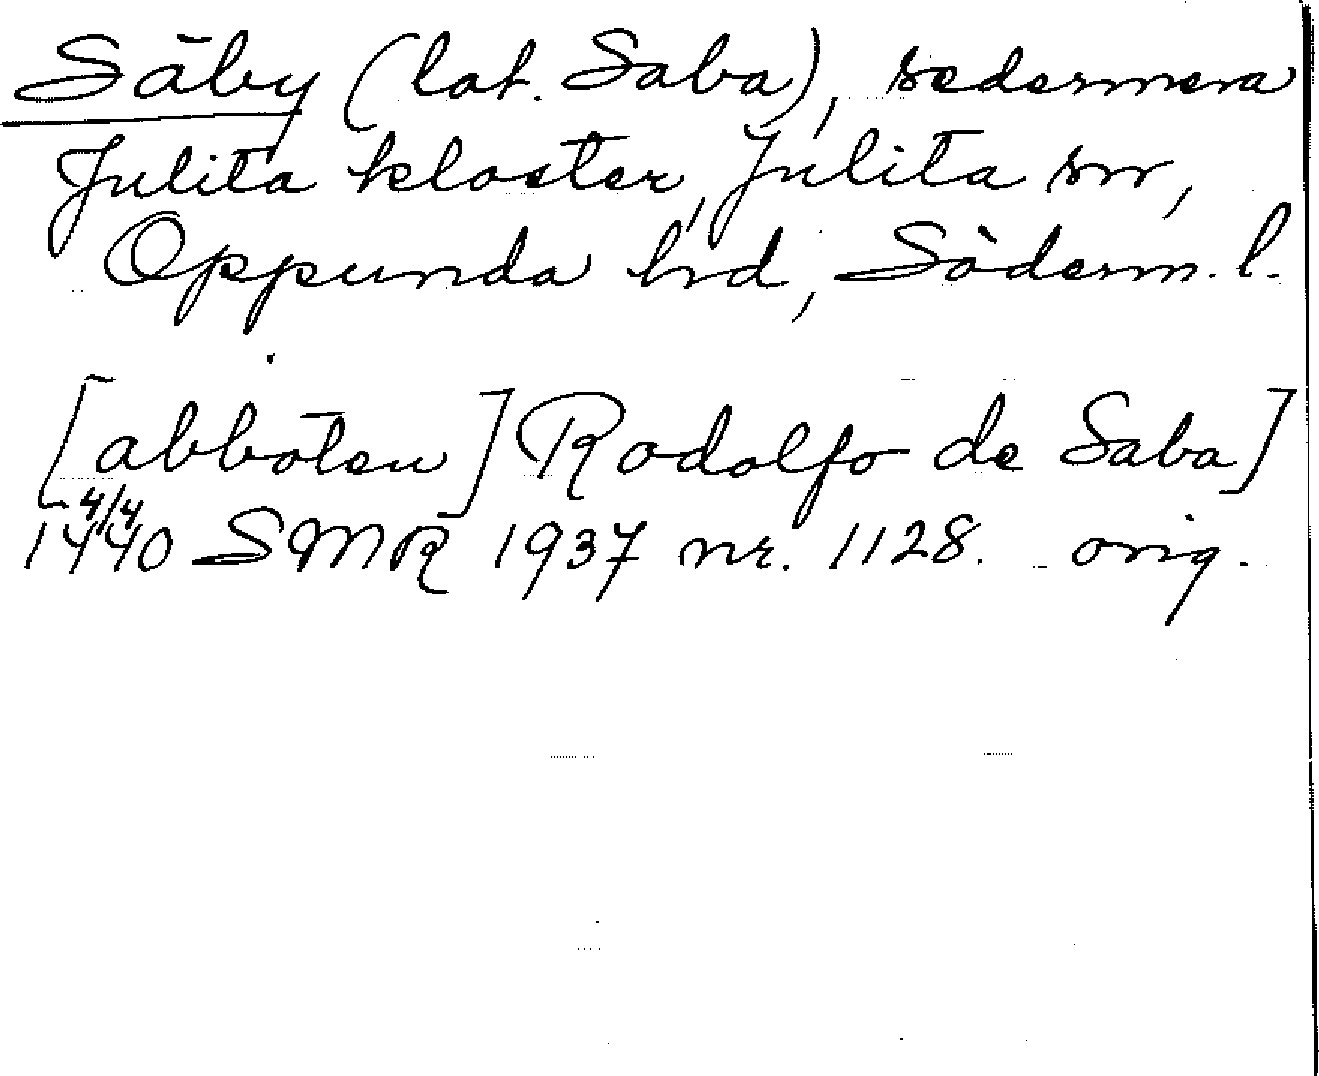 Säby (lat. Saba), sedermera
Julita kloster, Julita sn,
Oppunda hd, Söderm. l.
[abboten] Rodolfo de Saba]
1440 4/4 SMR 1937 nr. 1128. orig.